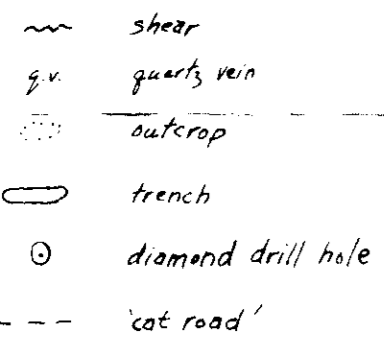 shear
q.v. quartz vein
outcrop
trench
diamond drill hole
'cat road'